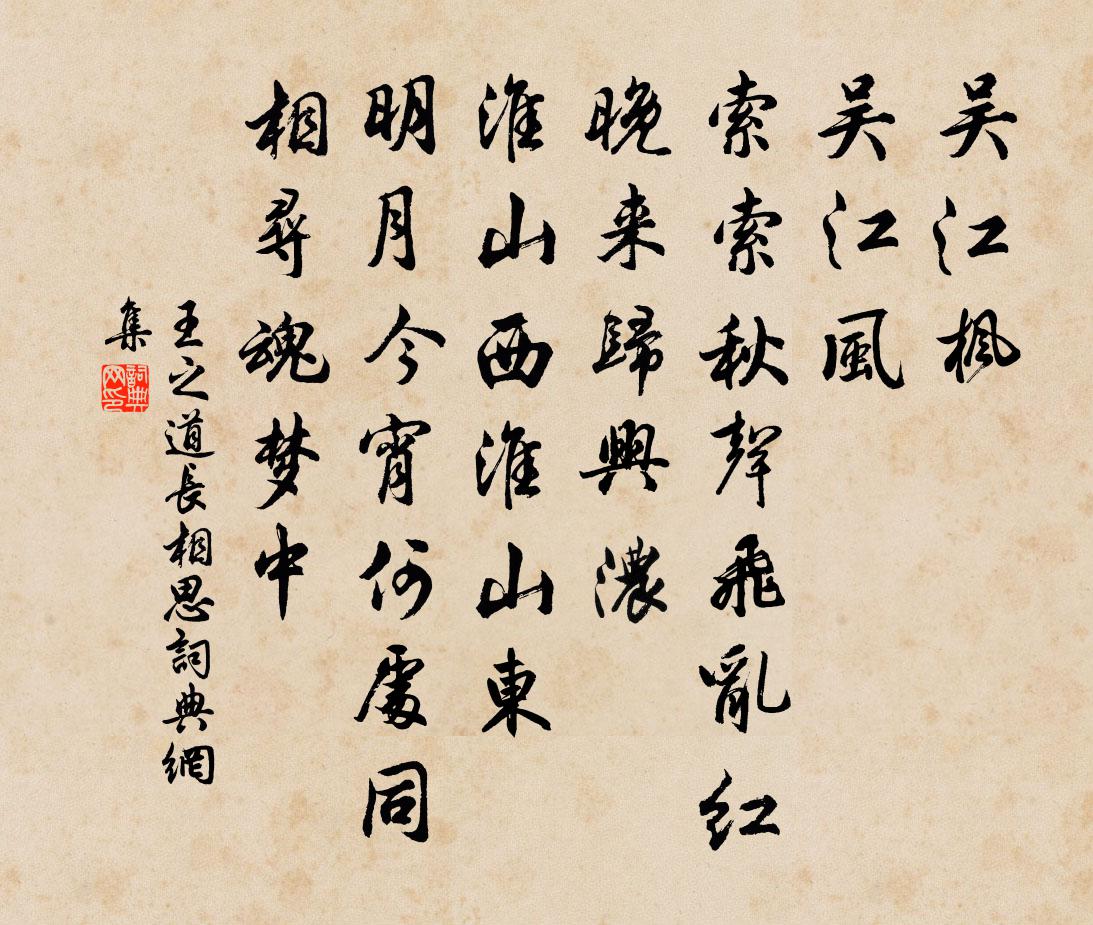 吴江枫
吴江風
索索秋聲飛亂红
晚来歸興濃
淮山西淮山東
明月今宵何處同
相尋魂梦中
王之道長相思詞典網
集
詞典
网印